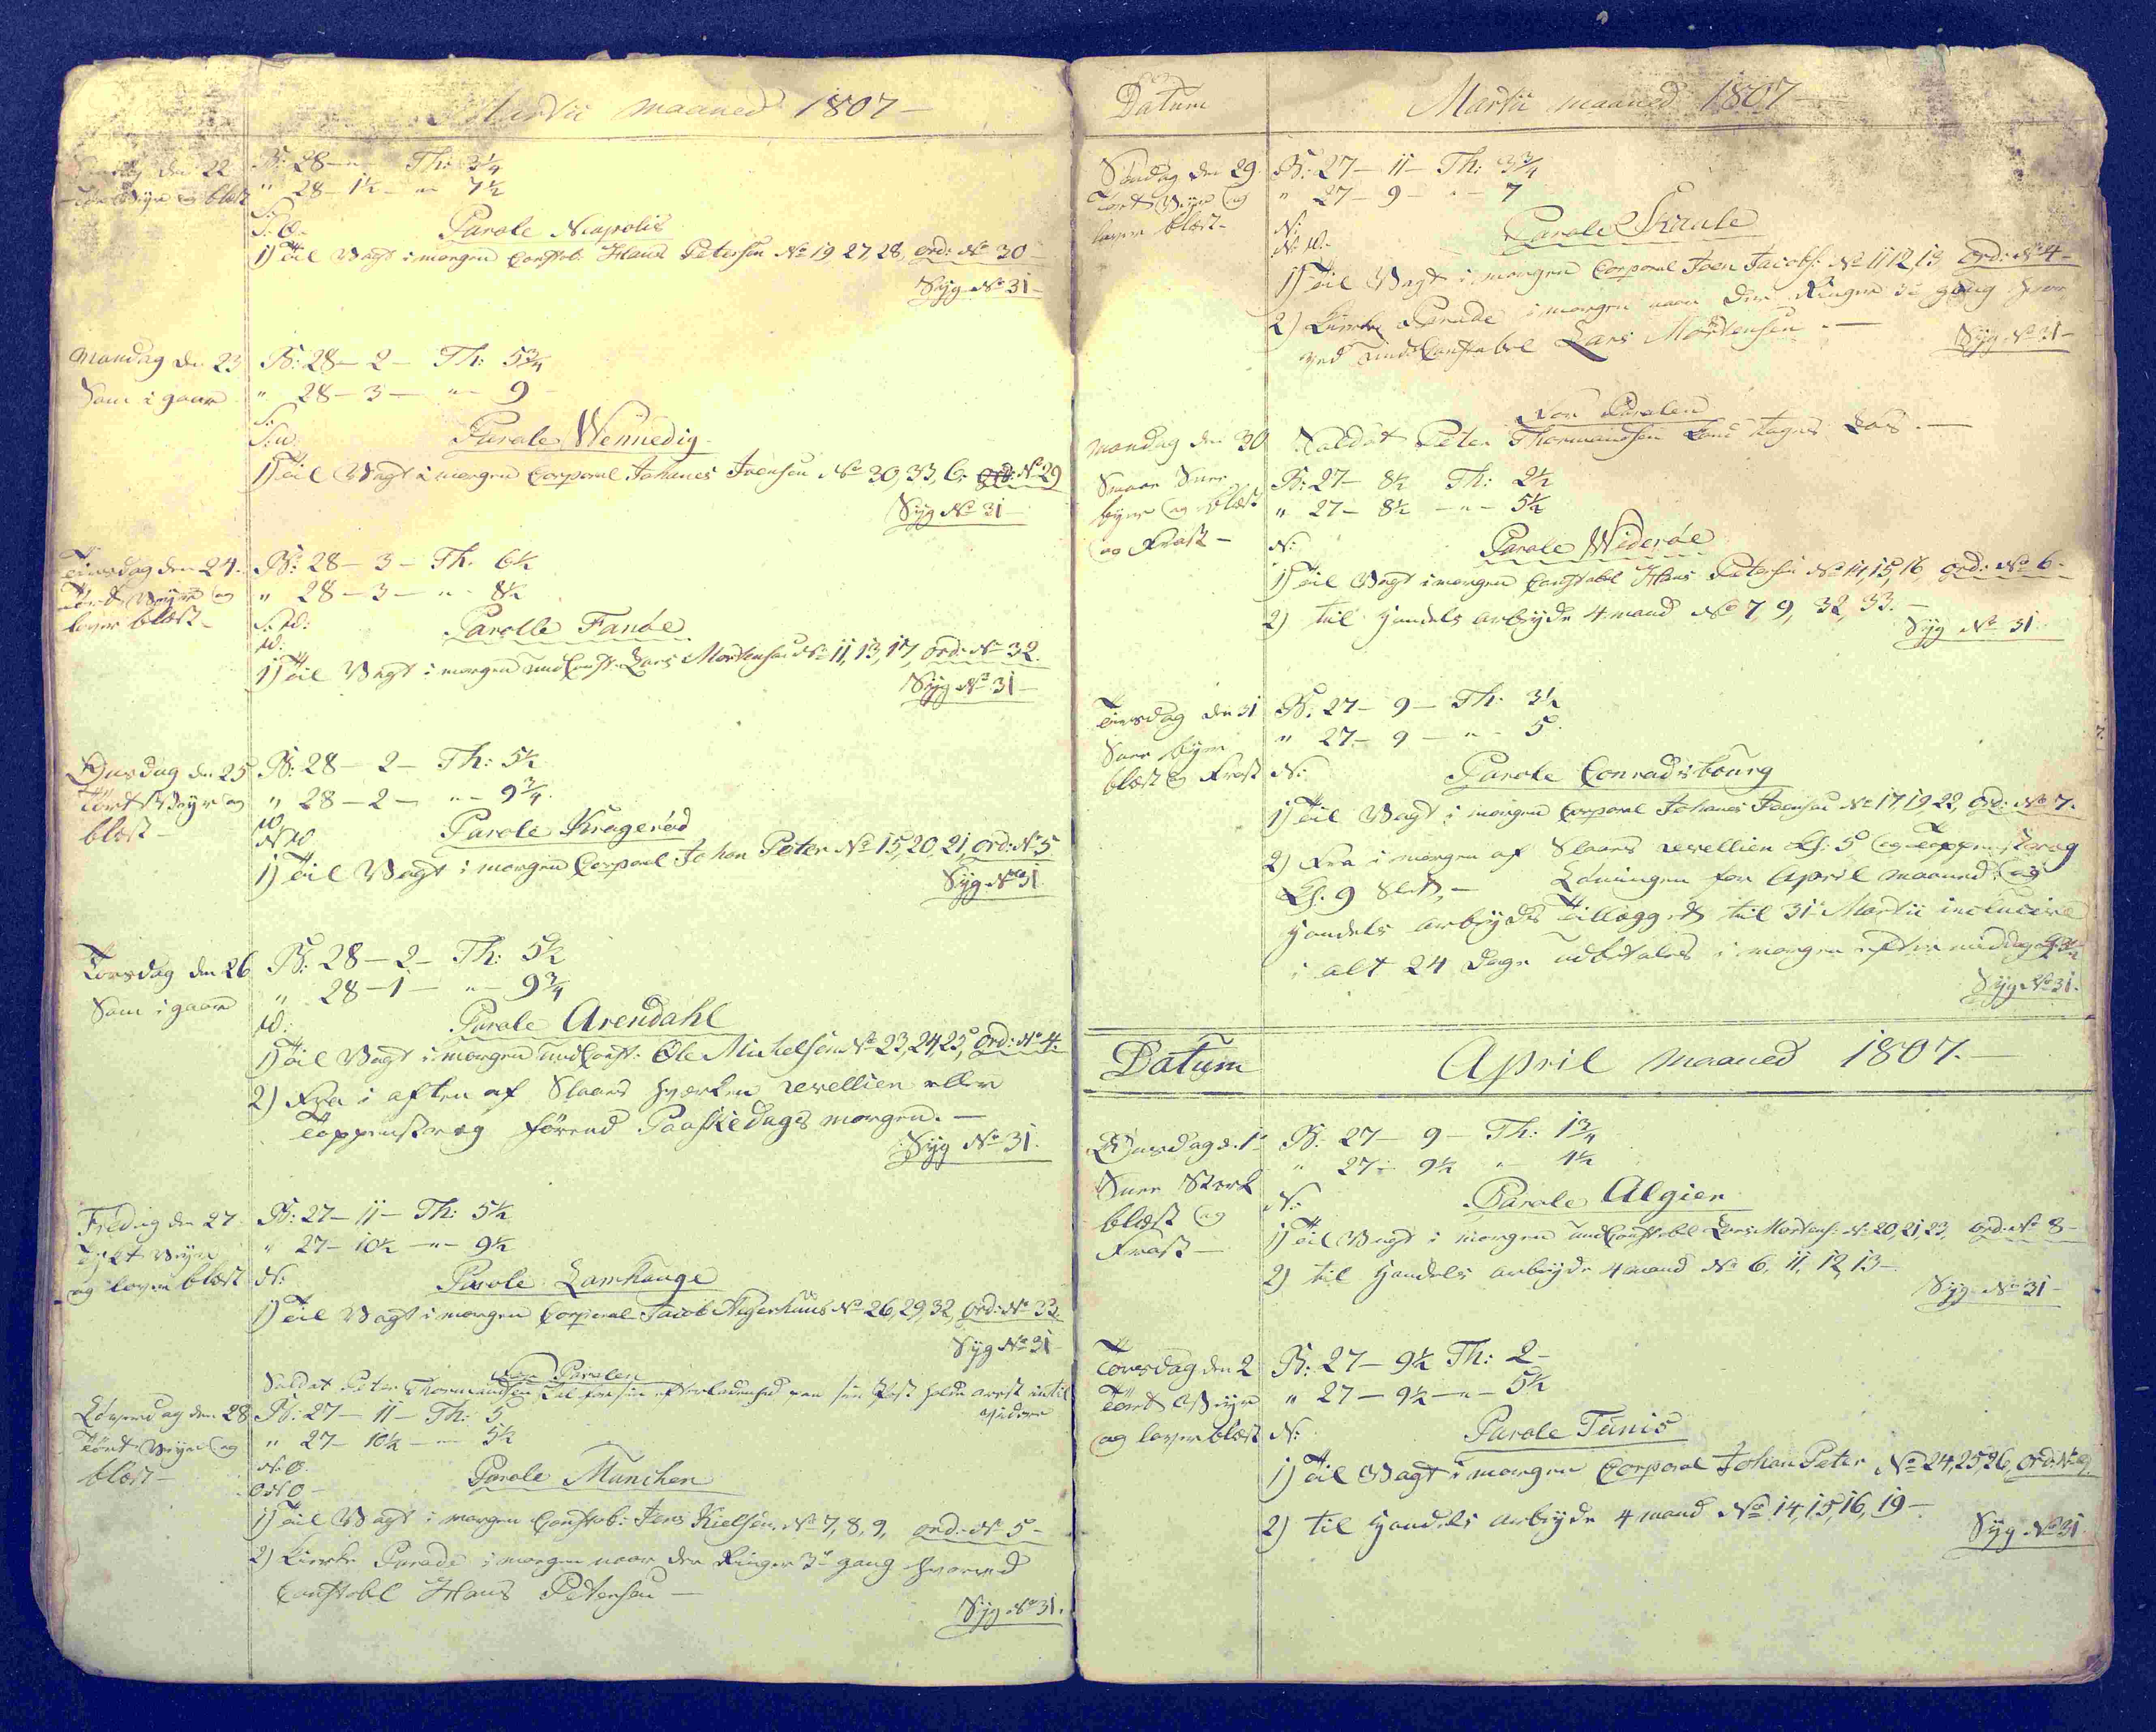 Martii maaned 1807 —
Søndag den 22 B: 28 — " — Th: 3¼
Tört Veyr og blæst " 28 — 1½ — " — 7½
S:
S:O. Parole Neapolis
1) Til Vagt i morgen Constab: Hans Petersen No 19, 27, 28, ord: No 30 —
Syg No 31 —
Mandag den 23 B: 28 — 2 — Th: 5¾
Som i gaar " 28 — 3 — " — 9 —
S:
S:W. Parole Wennedig
1) Til Vagt i morgen Corporal Johanes Joensen No 30, 33, 6, ord: No 29
Syg No 31 —
Tiirsdag den 24. B: 28 — 3 — Th. 6½
Tört Veyr og " 28 — 3 — " — 8½
laver blæst — S:W: Parolle Fanöe
W:
1) Til Vagt i morgen undConst: Lars Mortensen No 11, 13, 17, ord: No 32.
Syg No 31 —
Onsdag den 25 B: 28 — 2 — Th: 5½
Tört Veyr og " 28 — 2 — " — 9¾.
blæst — W
NW Parole Krageröd
1) Til Vagt i morgen Corporal Johan Peter No 15, 20, 21, ord: No 5.
Syg No 31.
Torsdag den 26 B: 28 — 2 — Th: 5½
Som i gaar " 28 — 1 — " — 9¾
W: Parole Arendahl
1) Til Vagt i morgen undConst: Ole Michelsen No 23, 24, 25, ord: No 4.
2) Fra i aften af Slaaes hverken revellien eller
Tappenstræg förend Paaskedags morgen. —
Syg No 31.
Fredag den 27. B: 27 — 11 — Th: 5½
Tykt Veyr " 27 — 10½ — " — 9½
og laver blæst N: Parole Lamhauge
1) Til Vagt i morgen Corporal Jacob Aigerhuus No 26, 29, 32, ord: No 33.
Syg No 31 —
For Parolen
Soldat Peter Thormandsen skal for sin efterladenhed paa sin Post holde arrest intil
videre
Löverdag den 28 B: 27 — 11 — Th: 5
Tört Veyr og " 27 — 10½ — " — 5½
blæst — N:O.
ONO — Parole München
1) Til Vagt i morgen Constab: Jens Kielsen, No 7, 8, 9, ord: No 5 —
2) Kierke Parade i morgen naar der Ringer 3de gang hvorved
Constabel Hans Petersen —
Syg No 31.
Datum Martii maaned 1807 —
Söndag den 29. B: 27 — 11 — Th: 3¾
Tört Veyr og " 27 — 9 — " — 7
laver blæst — N:
N:W. Parole Skaale
1) Til Vagt i morgen Corporal Joen Jacobs: No 11, 12, 13 ord: No 4 —
2) Kierke Parade i morgen naar der Ringer 3de gang hvor
ved undConstabel Lars Mortensen. —
Syg No 31 —
For Parolen
Mandag den 30 Soldat Peter Thormandsen Land tages Løs. —
Smaae Snee B: 27 — 8½ Th: 2½
byer og blæst " 27 — 8½ — " — 5½
og Frost — N: Parole Wideröe
1) Til Vagt i morgen Constabel Hans Petersen No 14, 15, 16 ord: No 6.
2) til Handels arbeyde 4 mand No 7, 9, 32, 33. —
Syg No 31.
Tiirsdag den 31 B: 27 — 9 — Th: 3½
Snee byer " 27 — 9 — " — 5.
blæst og Frost N: Parole Conradsbourg
1) Til Vagt i morgen Corporal Johanes Joensen No 17, 19, 22, ord: No 7.
2) Fra i morgen af Slaaes revellien Kl: 5 og Tappenstræg
Kl. 9 Slet, — Lønningen for April maaned og
Handels arbeydes Tillægget til 31te Martii inclusive
i alt 24 Dage udbetales i morgen eftermiddag
Syg No 31.
Datum April maaned 1807. —
Onsdag d. 1te B: 27 — 9 — Th: 1¾
Snee Stærk " 27 — 9½ " — 4½
blæst og N: Parole Algier
Frost — 1) Til Vagt i morgen undConstabel Lars Mortens: No 20, 21, 23, ord: No 8 —
2) til Handels arbeyde 4 mand No 6, 11, 12, 13 —
Syg No 31 —
Torsdag den 2 B: 27 — 9½ Th: 2 —
Tört Veyr " 27 — 9½ — " — 5½
og laver blæst N: Parole Tunis
1) Til Vagt i morgen Corporal Johan Peter No 24, 25, 26, ord: No 9.
2) til Handels arbeyde 4 mand No 14, 15, 16, 19 —
Syg No 31.